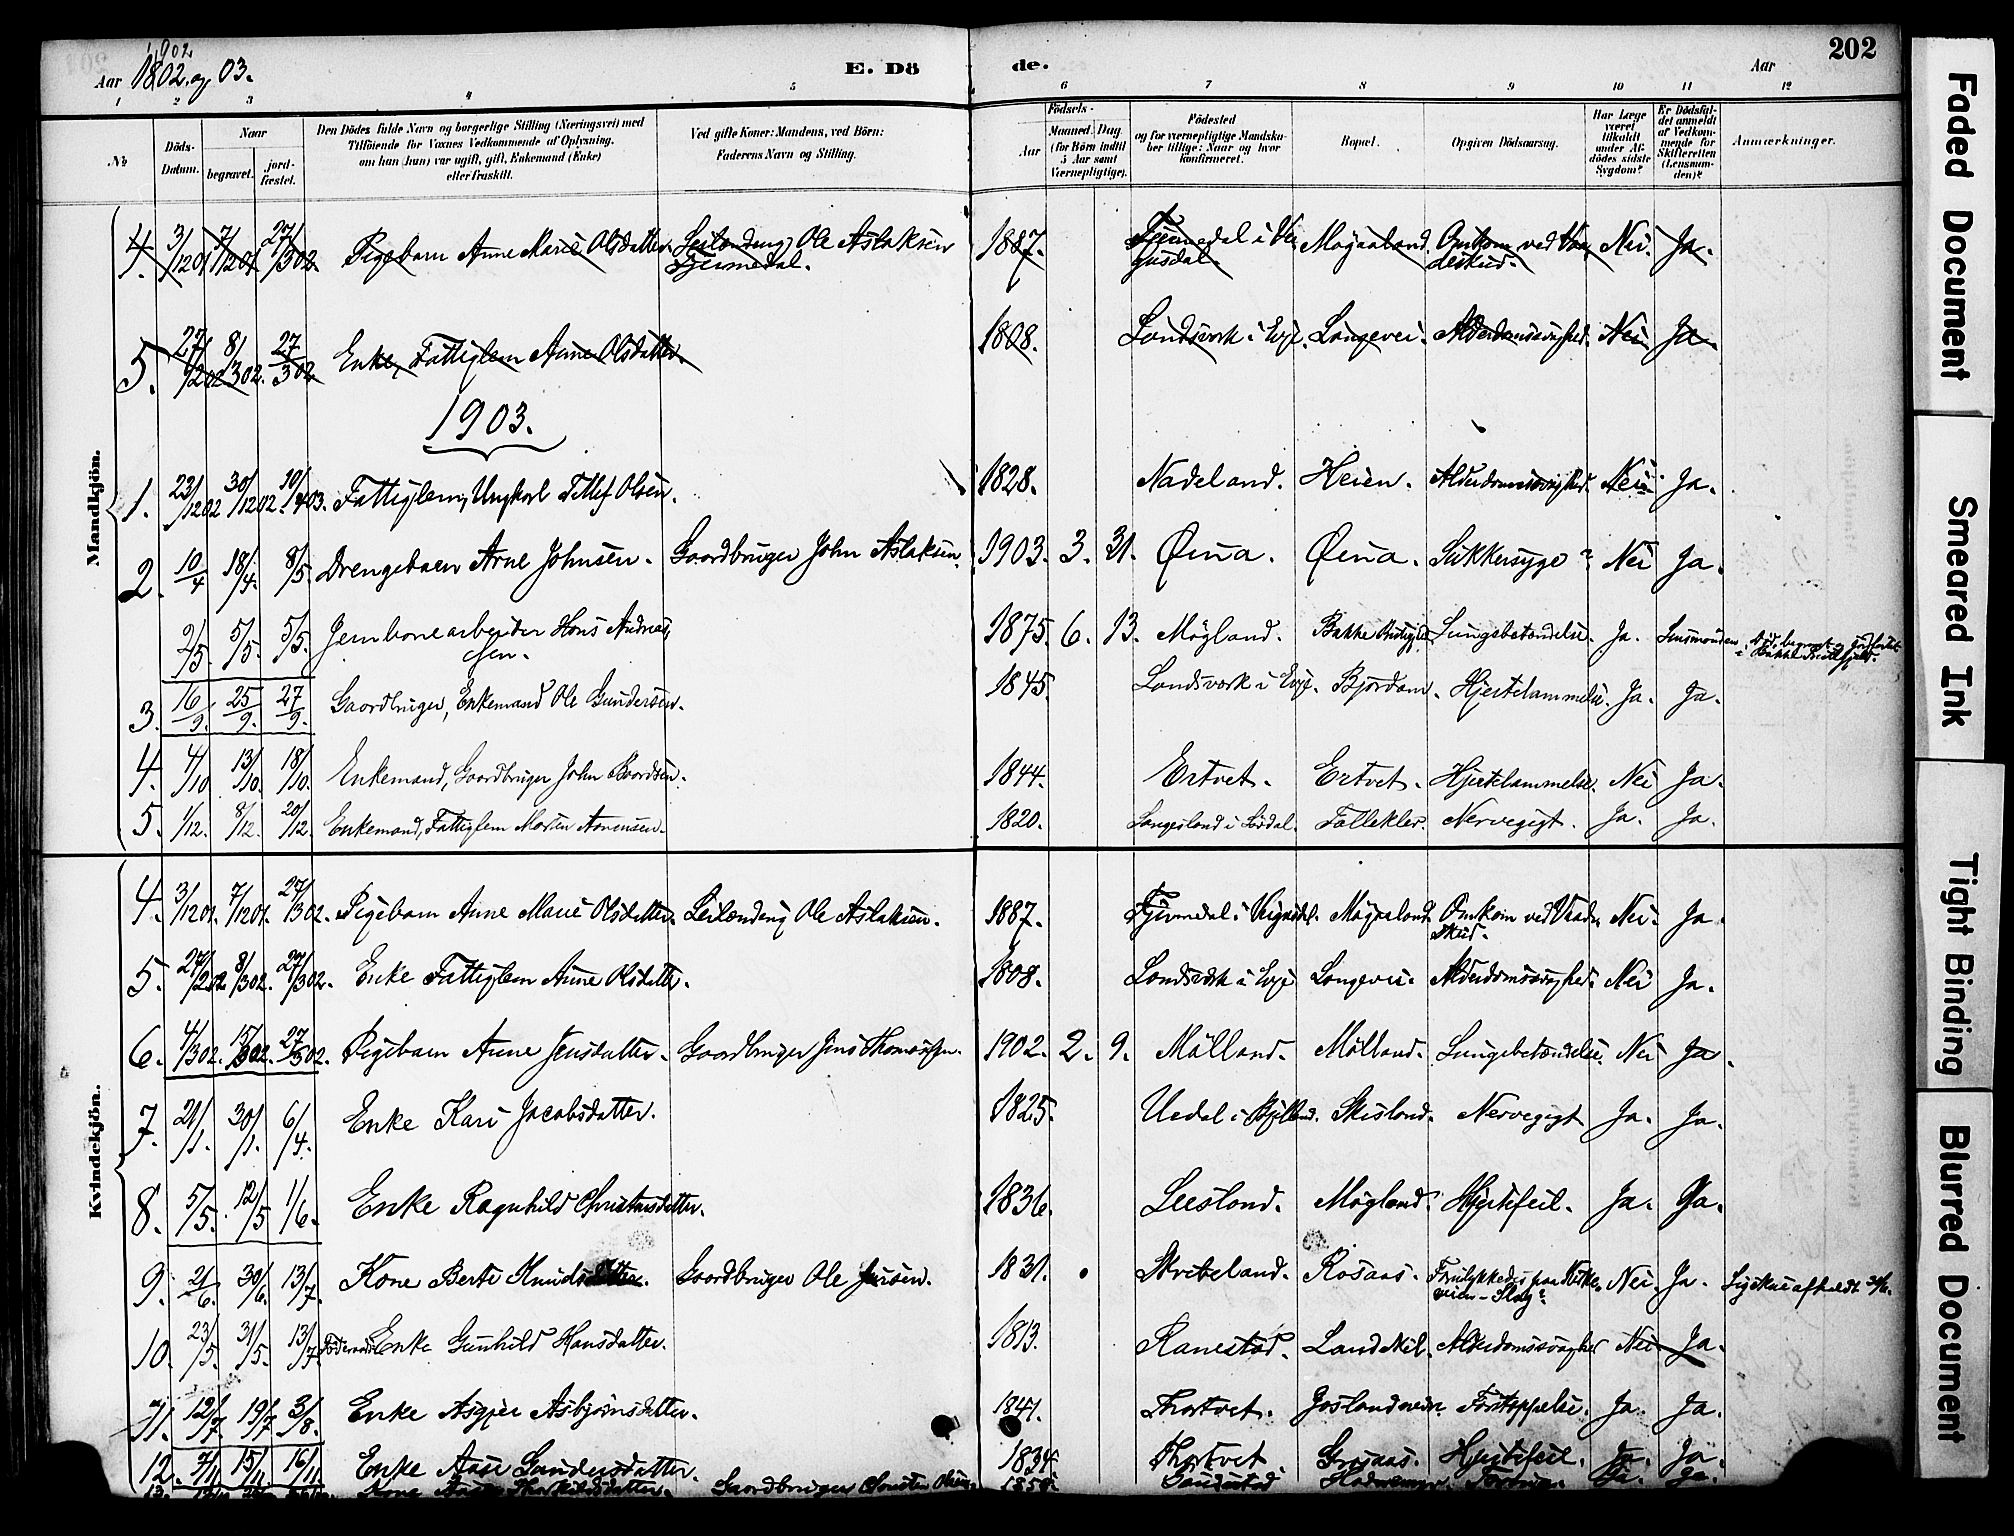 1902
Aar 1802. og 03.
E. Döde.
Aar
202
1 2 3 4 5 6 7 8 9 10 11 12
No
Döds-Datum.
Naar
begravet.
jord-fæstet.
Den Dödes fulde Navn og borgerlige Stilling (Næringsvei) med
Tilföiende for Voxnes Vedkommende af Oplysning,
om han (hun) var ugift, gift, Enkemand (Enke)
eller fraskilt.
Ved gifte Koner: Mandens, ved Börn:
Faderens Navn og Stilling.
Födsels-
Aar
Maaned. Dag.
(for Börn indtil
5 Aar samt
Værnepligtige).
Födested
og for værnepligtige Mandska-
ber tillige: Naar og hvor
konfirmeret.
Bopæl.
Opgiven Dödsaarsag.
Har Læge
været
tilkaldt
under Af-
dödes sidste
Sygdom?
Er Dödsfal-
det anmeldt
af Vedkom-
mende for
Skifteretten
(Lensman-
den)?
Anmærkninger.
Mandkjön.
4. 3/12 01 7/12 01 27/3 02. Pigebarn Anne Marie Olsdatter. Leilænding Ole Aslaksen 1887. Møgaaland. Omkom ved Vaadeskud. Nei. Ja.
5. 27/2 02 8/3 02. 27/3 02 Enke, Fattiglem Anne Olsdatter. 1808. Landsverk i Evje. Langevei. Alderdomssvaghed. Nei. Ja.
1903.
1. 23/12 02 30/12 02. 10/4 03. Fattiglem, Ungkarl Tellef Olsen. 1828. Nadeland. Heien. Alderdomssvaghed. Nei. Ja.
2. 10/4 18/4. 8/5. Drengebarn Arne Johnsen. Gaardbruger John Aslaksen. 1903. 3. 31. Øina. Øina. Sukkersyge? Nei Ja.
2/5. 5/5. 5/5. Jernbanearbeider Hans Andreassen. 1875. 6. 13. Møgland. Bakke Lungebetændelse. Ja. Lensmanden
3. 16/9. 25/9. 27/9. Gaardbruger, Enkemand Ole Gundersen. 1845. Landsverk i Evje. Bjordam. Hjertelammelse. Ja. Ja.
4. 4/10 13/10. 18/10. Enkemand, Gaardbruger John Baardsen. 1844. Ertvet. Ertvet. Hjertelammelse. Nei Ja.
5. 1/12. 8/12. 20/12. Enkemand, Fattiglem Morten Aanensen. 1820. Fallekler. Nervegigt. Ja. Ja.
Kvindekjön.
4. 3/12 01. 7/12 01. 27/3 02. Pigebarn Anne Marie Olsdatter. Leilænding Ole Aslaksen. 1887. Møgaaland. Omkom ved Vaadeskud. Nei. Ja.
5. 27/2 02. 8/3 02. 27/3 02. Enke Fattiglem Anne Olsdatter. 1808. Landsverk i Evje Langevei. Alderdomssvaghed. Nei Ja.
6. 4/3 02. 15/3 02. 27/3 02. Pigebarn Anne Jensdatter. Gaardbruger Jens Thomassen. 1902. 2. 9. Mølland. Mølland. Lungebetændelse. Nei Ja.
7. 21/1. 30/1. 6/4. Enke Kari Jacobsdatter. 1825. Uedal i Bjelland. Skisland. Nervegigt Ja. Ja.
8. 5/5. 12/5 1/6. Enke Ragnhild Christensdatter. 1836. Leesland. Møgland. Hjertefeil. Ja. Ja.
9. 21/6. 30/6. 13/7. Kone Berte Knudsdatter. Gaardbruger Ole Jensen. 1831. Skreeland. Rosaas. Forulykkedes paa Kirkeveien - Slag? Nei. Ja. Ligskue afholdt
10. 23/5. 31/5. 13/7. Enke Gunhild Hansdatter. 1813. Ranestad. Landskil. Alderdomssvaghed Nei Ja.
11. 12/7. 19/7 3/8. Enke Asgjer Asbjørnsdatter. 1841. Thortvet. Forstoppelse. Ja. Ja.
12. 7/11. 15/11. 16/11. Enke Aase Gundersdatter. 1834. Thortvet. Grosaas. Hjertefeil. Ja. Ja.
Gaardbruger
Faded Document
Smeared Ink
Tight Binding
Blurred Document